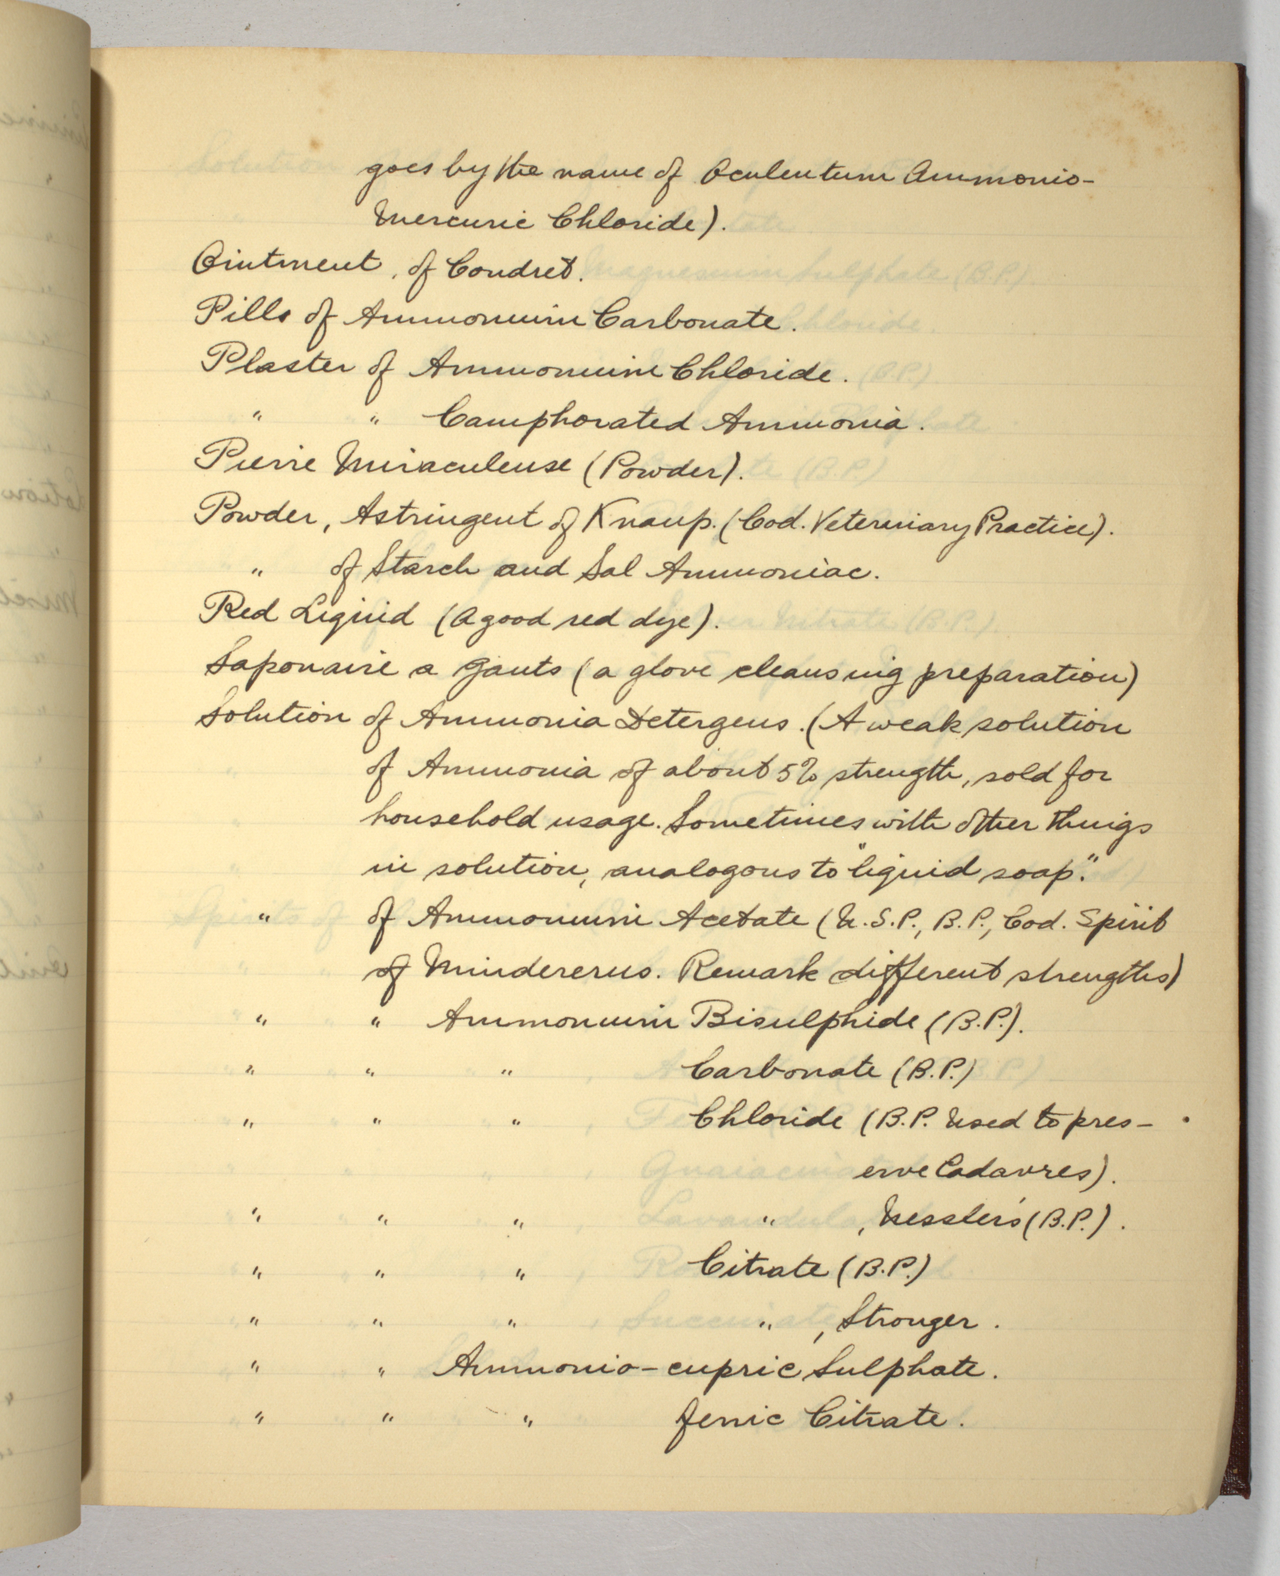 goes by the name of Oculentum Ammonio-
Mercuric Chloride).
Ointment, of Gondret.
Pills of Ammonium Carbonate.
Plaster of Ammonium Chloride.
" " Camphorated Ammonia.
Pierre Miraculeuse (Powder).
Powder, Astringent of Knaup. (Cod. Veterinary Practice).
" of Starch and Sal Ammoniac.
Red Liquid (A good red dye).
Saponaire a gants (a glove cleansing preparation)
Solution of Ammonia Detergens. (A weak solution
of Ammonia of about 5% strength, sold for
household usage. Sometimes with other things
in solution, analogous to "liquid soap".
" of Ammonium Acetate (U.S.P., B.P., Cod. Spirit
of Mindererus. Remark different strengths)
" " Ammonium Bisulphide (B.P.).
" " " Carbonate (B.P.)
" " " Chloride (B.P. Used to pres-
erve Cadavres).
" " " " , Nessler's (B.P.).
" " " Citrate (B.P.)
" " " " , Stronger.
" " Ammonio-cupric Sulphate.
" " " ferric Citrate.